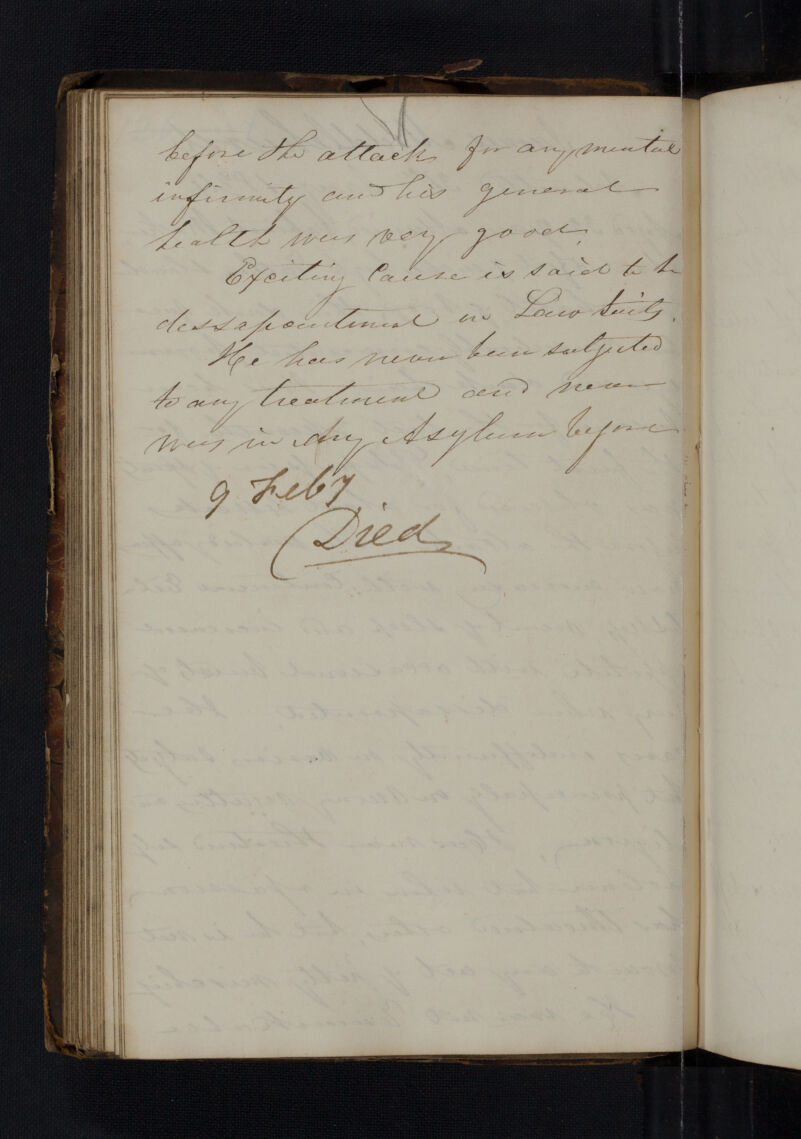 before the attack for any mental
infirmity and his general
health was very good.
Exciting Cause is said to be
dessapointment in Law Suits.
He has never been subjected
to any treatment and never
was in any Asylum before
9 Feby
Died